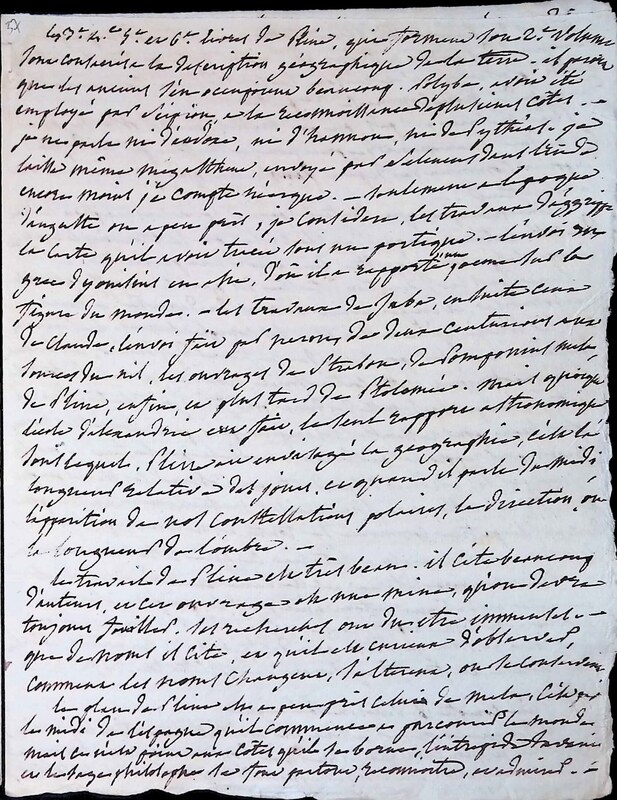 les 3e. 4e. 5e. et 6e. livres de Pline, qui forment son 2e. volume
sont consacrés a la description géographique de la terre. il paroit
que les anciens s'en occuperent beaucoup. Polybe, avoit été
employé par Scipion, a la reconnoissance de plusieurs côtes. —
je ne parle ni d'eudoxe, ni d'hannon, ni de Pythéas. je
laisse même megasthene, envoyé par Seleucus dans l'inde
encore moins je compte néarque. — seulement a l'epoque
d'auguste ou a peu près, je considere, les travaux d'agrippa
la carte qu'il avoit tracée sous un portique. — l'envoi du
grec dyonisius en asie, d'où il a rapporté un poeme sur la
figure du monde. — les travaux de Juba, ensuite ceux
de Claude, l'envoi fait par neron, de deux centurions aux
sources du nil, les ouvrages de Strabon, de Pomponius mela
de Pline, enfin, et plus tard de Ptolemée. mais quoique
l'école d'alexandrie eut fait, le seul rapport astronomique
sous lequel, Pline ait envisagé la géographie, c'est la
longueur relative des jours, et quand il parle du midi
l'apparition de nos constellations polaires, la direction, ou
la longueur de l'ombre. —
le travail de Pline est très beau. il cite beaucoup
d'auteurs, et cet ouvrage est une mine, qu'on devra
toujours fouiller. ses recherches ont du être immenses. —
que de noms il cite, et qu'il est curieux d'observer,
comment les noms changent, s'alterent, ou se conservent.
le plan de Pline est a peu près celui de mela, c'est par
le midi de l'espagne qu'il commence a parcourir le monde
mais ce n'est point aux côtes qu'il se borne, l'intrepide marin
et le sage philosophe se font partout, reconnoitre, et admirer. —